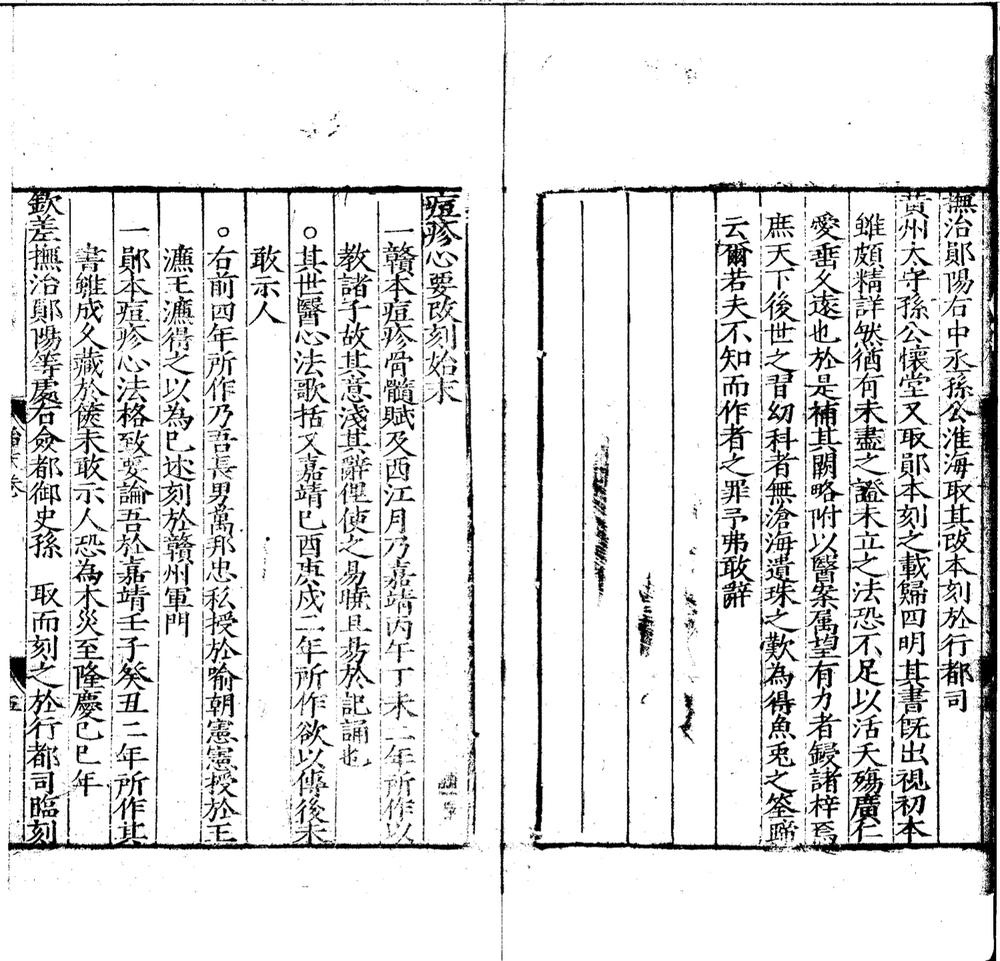 撫治鄖陽右中丞孫公淮海取其改本刻於行都司
黃州太守孫公懷堂又取鄖本刻之載歸四明其書旣出視初本
雖頗精詳然猶有未盡之證未立之法恐不足以活夭殤廣仁
愛垂久遠也於是補其闕略附以醫案属望有力者鋟諸梓焉
庶天下後世之習幼科者無滄海遺珠之歎為得魚兎之筌蹄
云爾若夫不知而作者之罪予弗敢辭
痘疹心要改刻始末
一贛本痘疹骨髓賦及西江月乃嘉靖丙午丁未二年所作以
教諸子故其意淺其辭俚使之易曉且易於記誦也
○其世醫心法歌括又嘉靖己酉庚戍二年所作欲以傳後未
敢示人
○右前四年所作乃吾長男萬邦忠私授於喻朝憲憲授於王
濂王濂得之以為己述刻於贛州軍門
一鄖本痘疹心法格致要論吾於嘉靖壬子癸丑二年所作其
書雖成久藏於篋未敢示人恐為木災至隆慶己巳年
欽差撫治鄖陽等處右僉都御史孫 取而刻之於行都司臨刻